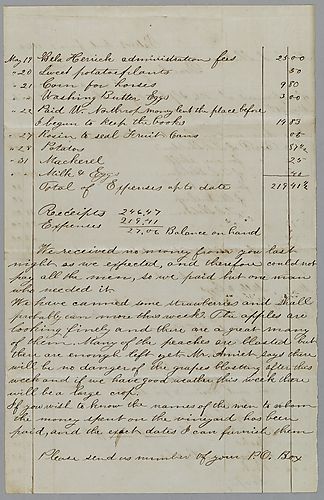 May 19 Bela Herrick administration fees 25 00
" 20 Sweet potatoe plants 50
" 21 Corn for horses 9 80
" " Washing Butter Eggs 3 00
" 22 Paid W. Northrop money lent the place before
I began to keep the books 19 83
" 27 Rosin to seal Fruit Cans 05
" 28 Potatoes
" 31 Mackerel 25
" " Milk & Eggs
Total of Expenses up to date 219 41½
Receipts 246,47
Expenses 219,41
27,06 Balance on hand
We received no money from you last
night as we expected, and therefore could not
pay all the men, so we paid but one man
who needed it.
We have canned some strawberries and shall
probably can more this week. The apples are
looking finely and there are a great many
of them. Many of the peaches are blasted but
there are enough left yet. Mr. says there
will be no danger of the grapes blasting after this
week and if we have good weather this week there
will be a large crop.
If you wish to know the names of the men to whom
the money spent on the vineyard has been
paid, and the exact dates I can furnish them
Please send us number of your P.O. Box